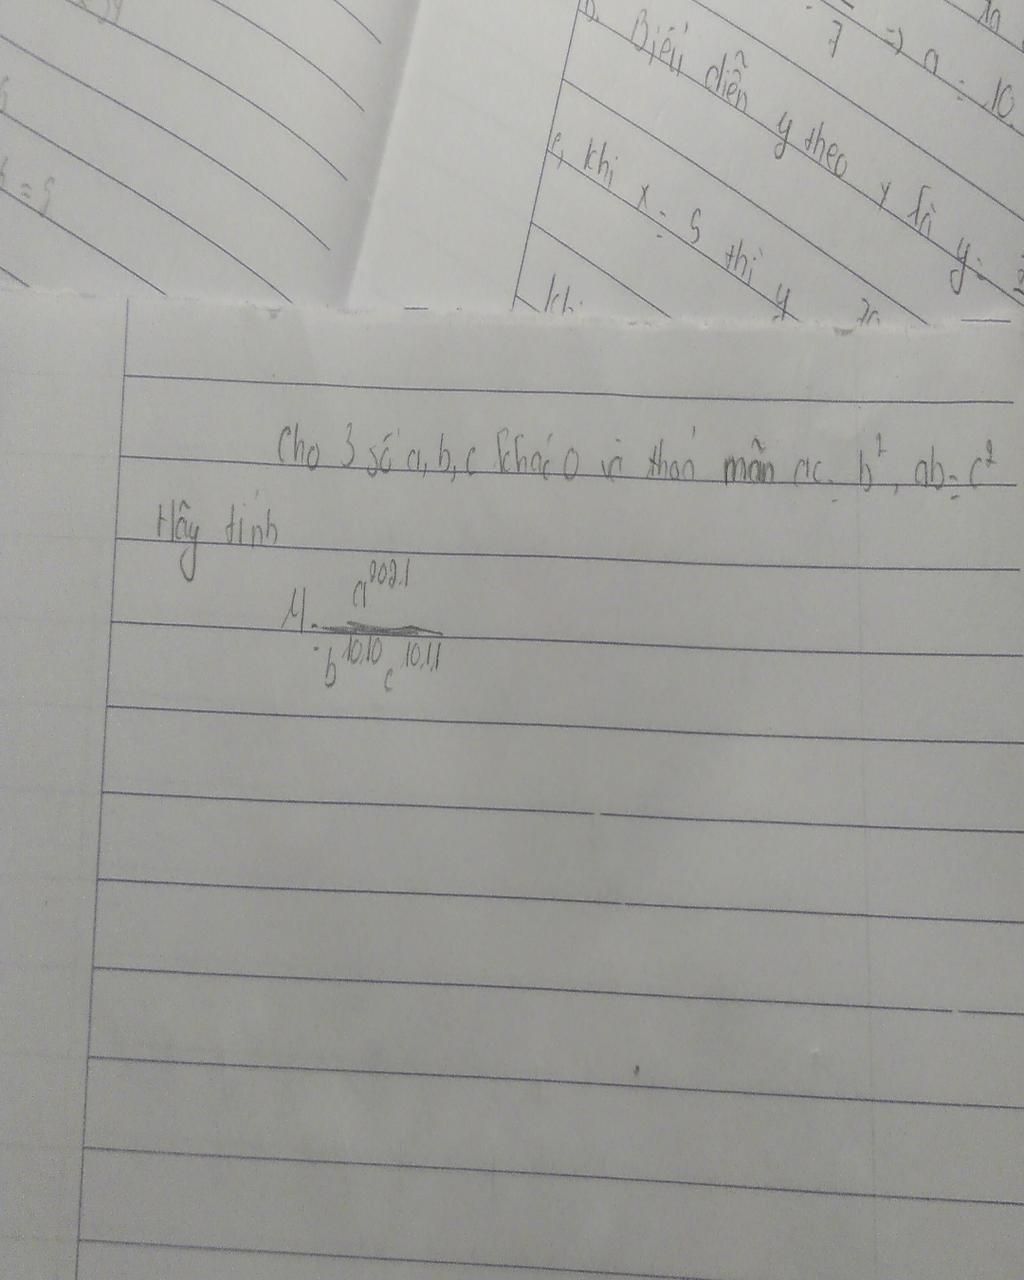 7 => a = 10
b. Biểu diễn y theo x là y =
c, khi x = 5 thì y
khi
Cho 3 số a, b, c khác 0 và thoả mãn ac = b², ab = c²
Hãy tính
M = a^2021 / b^1010 c^1011